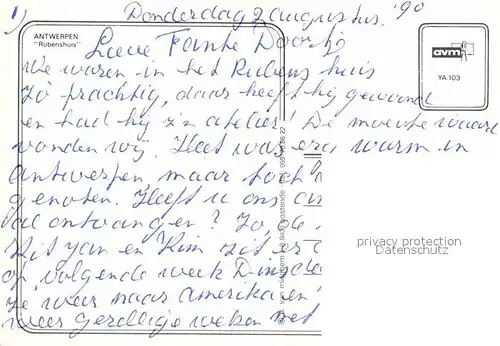 1)
Donderdag 2 augustus. '90
ANTWERPEN
"Rubenshuis"
avm
YA.103
Lieve Tante Doortj
We waren in het Rubens huis
Zo prachtig, daar heeft hij gewoond
en had hij z'n atelier! De moeite waard
vonden wij. Heet was era warm in
Antwerpen maar toch
genoten. Heeft u ons
ontvangen? Zo, de
Zit Jan en Kim zit er
op, volgende week Dinsda
ze weer naar Amerika en
weer gezellige weken met
privacy protection
Datenschutz